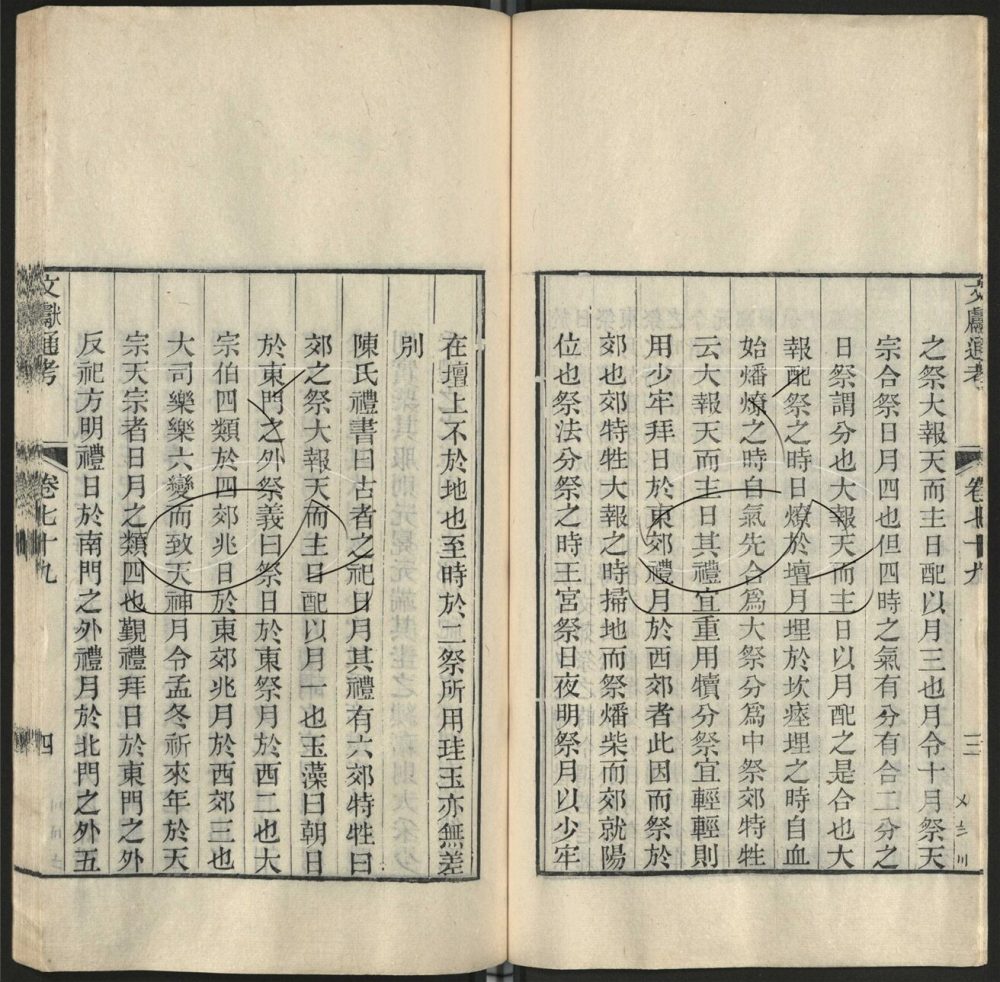 文獻通考
卷七十九
三
之祭大報天而主日配以月三也月令十月祭天
宗合祭日月四也但四時之氣有分有合二分之
日祭謂分也大報天而主日以月配之是合也大
報配祭之時日燎於壇月埋於坎瘞埋之時自血
始燔燎之時自氣先合爲大祭分爲中祭郊特牲
云大報天而主日其禮宜重用犢分祭宜輕輕則
用少牢拜日於東郊禮月於西郊者此因而祭於
郊也郊特牲大報之時掃地而祭燔柴而郊就陽
位也祭法分祭之時王宮祭日夜明祭月以少牢
在壇上不於地也至時於二祭所用珪玉亦無差
別
陳氏禮書曰古者之祀日月其禮有六郊特牲曰
郊之祭大報天而主日配以月一也玉藻曰朝日
於東門之外祭義曰祭日於東祭月於西二也大
宗伯四類於四郊兆日於東郊兆月於西郊三也
大司樂樂六變而致天神月令孟冬祈來年於天
宗天宗者日月之類四也覲禮拜日於東門之外
反祀方明禮日於南門之外禮月於北門之外五
文獻通考
卷七十九
四